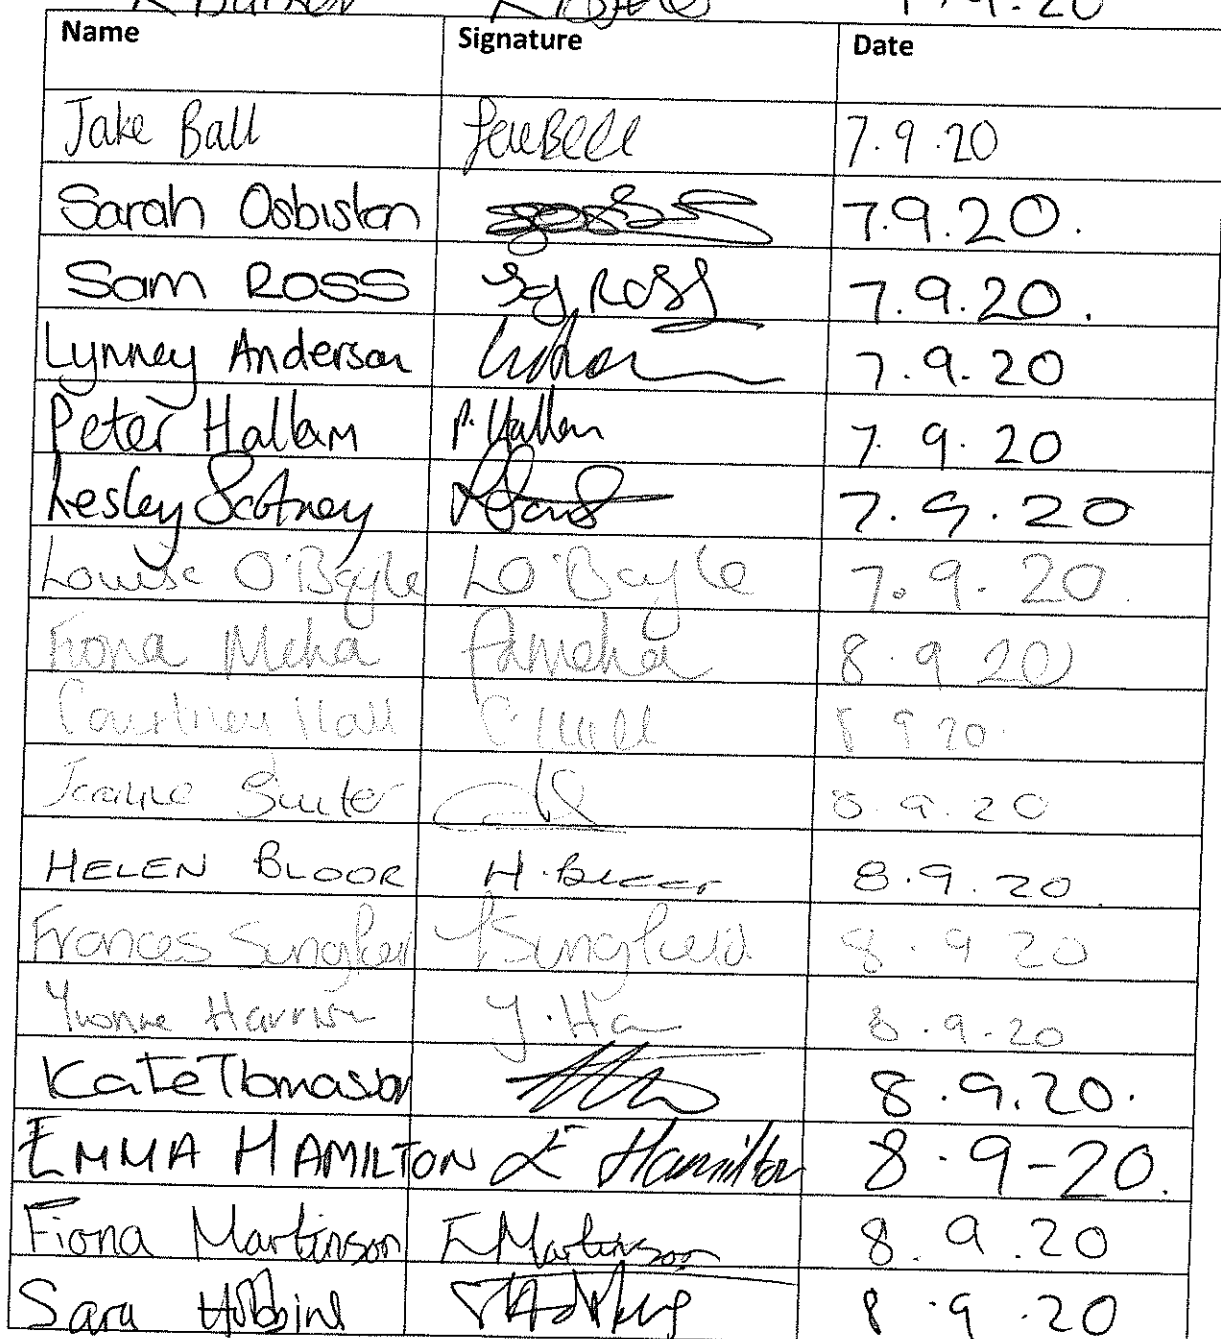 7.9.20
Name Signature Date
Jake Ball 7.9.20
Sarah Osbiston 7.9.20.
Sam Ross SJ Ross 7.9.20.
Lynney Anderson 7.9.20
Peter Hallam P. Hallam 7.9.20
Lesley Scotney 7.9.20
Louise O'Boyle LO'Boyle 7.9.20.
Fiona Meha 8.9.20
Courtney Hall C. Hall 8.9.20.
8.9.20
HELEN BLOOR H. Bloor 8.9.20.
Frances 8.9.20
Yvonne Harrison Y. Ha 8.9.20
Kate Tomason 8.9.20.
EMMA HAMILTON E Hamilton 8.9-20.
Fiona Martinson F. Martinson 8.9.20
Sara 8.9.20